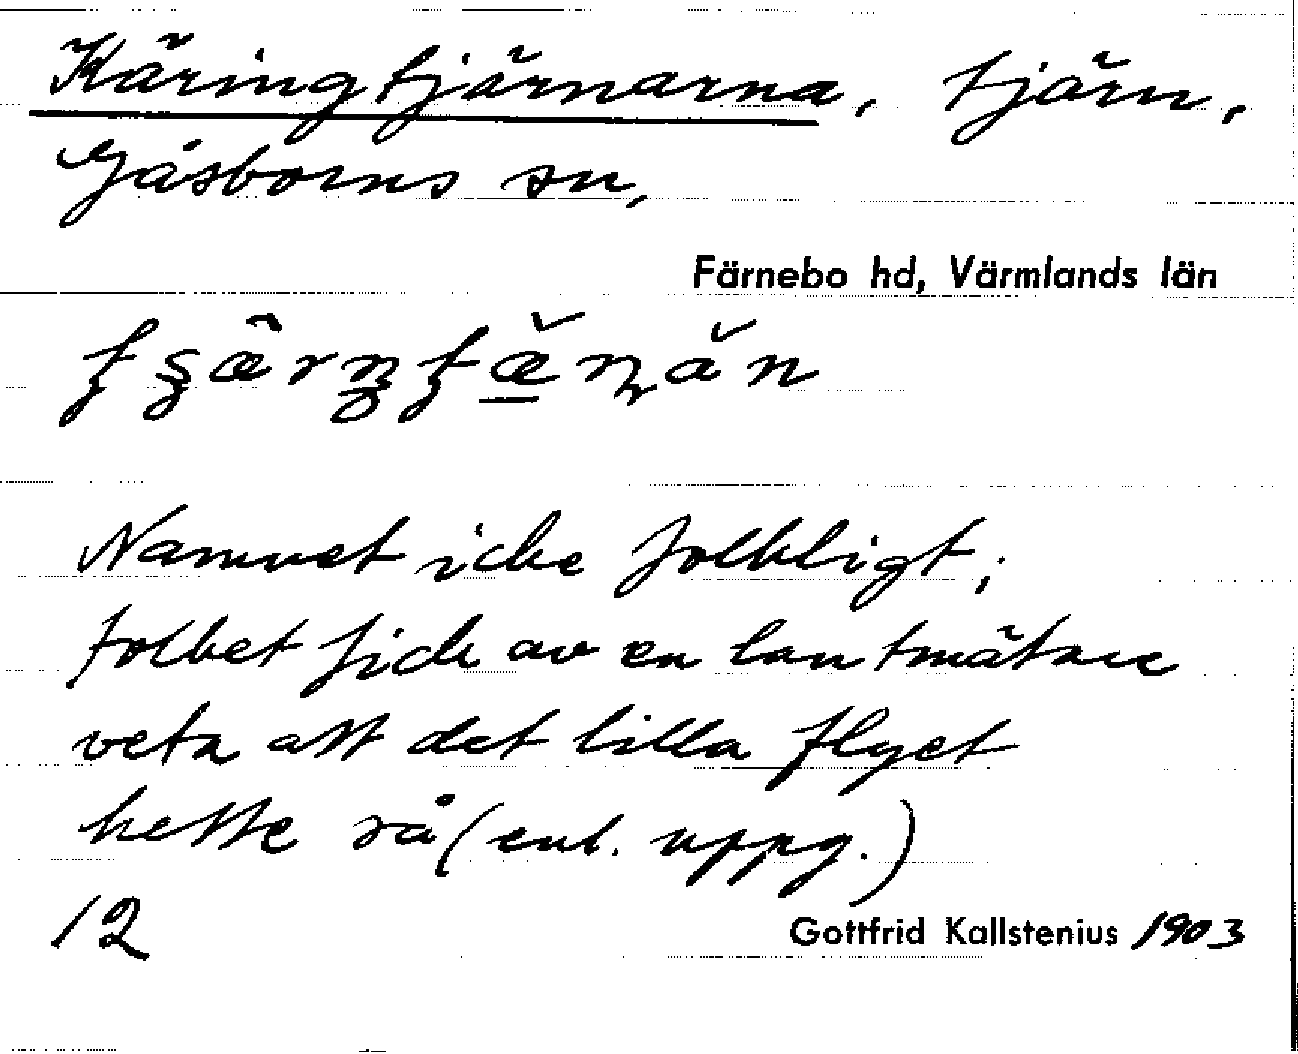 Käringtjärnarna, tjärn,
Gåsborns sn,
Färnebo hd, Värmlands län
Namnet icke folkligt;
folket fick av en lantmätare
veta att det lilla flyet
hette så (enl. uppg.)
12
Gottfrid Kallstenius 1903